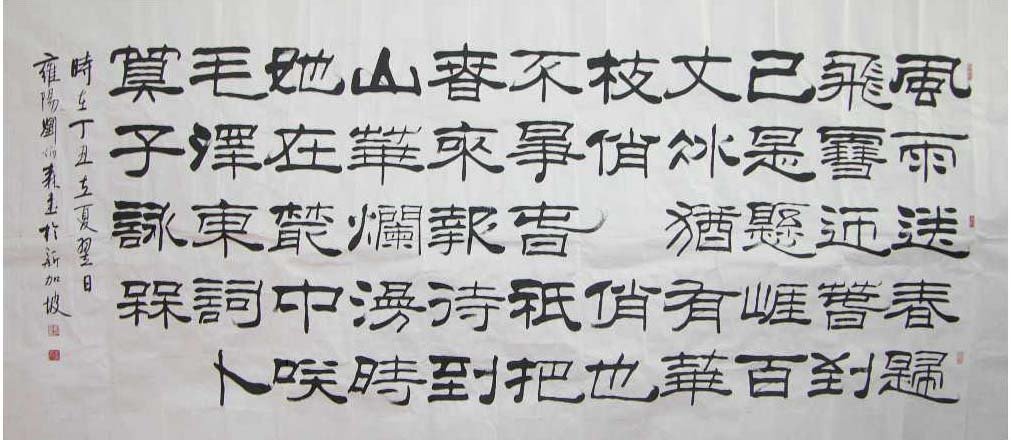 風雨送春歸
飛雪迎萅到
已是懸崕百
丈冰猶有華
枝俏俏也
不爭旾祇把
春來報待到
山華爛漫時
她在叢中咲
毛澤東詞卜
算子詠槑
時在丁丑立夏翌日
雍陽劉伯書於新加坡